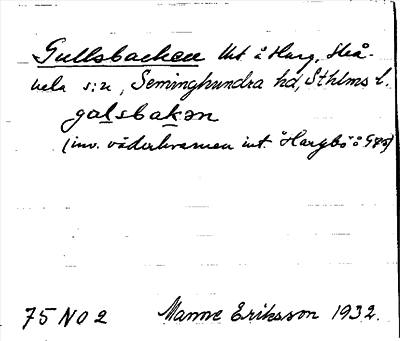 Gullsbacken Uht. å Harg, Skå-
nela s:n, Seminghundra hd, Sthlms l.
galsbakən
(inv. väderkvarnen int. "Hargbo" å G75)
75 N O 2 Manne Eriksson 1932.